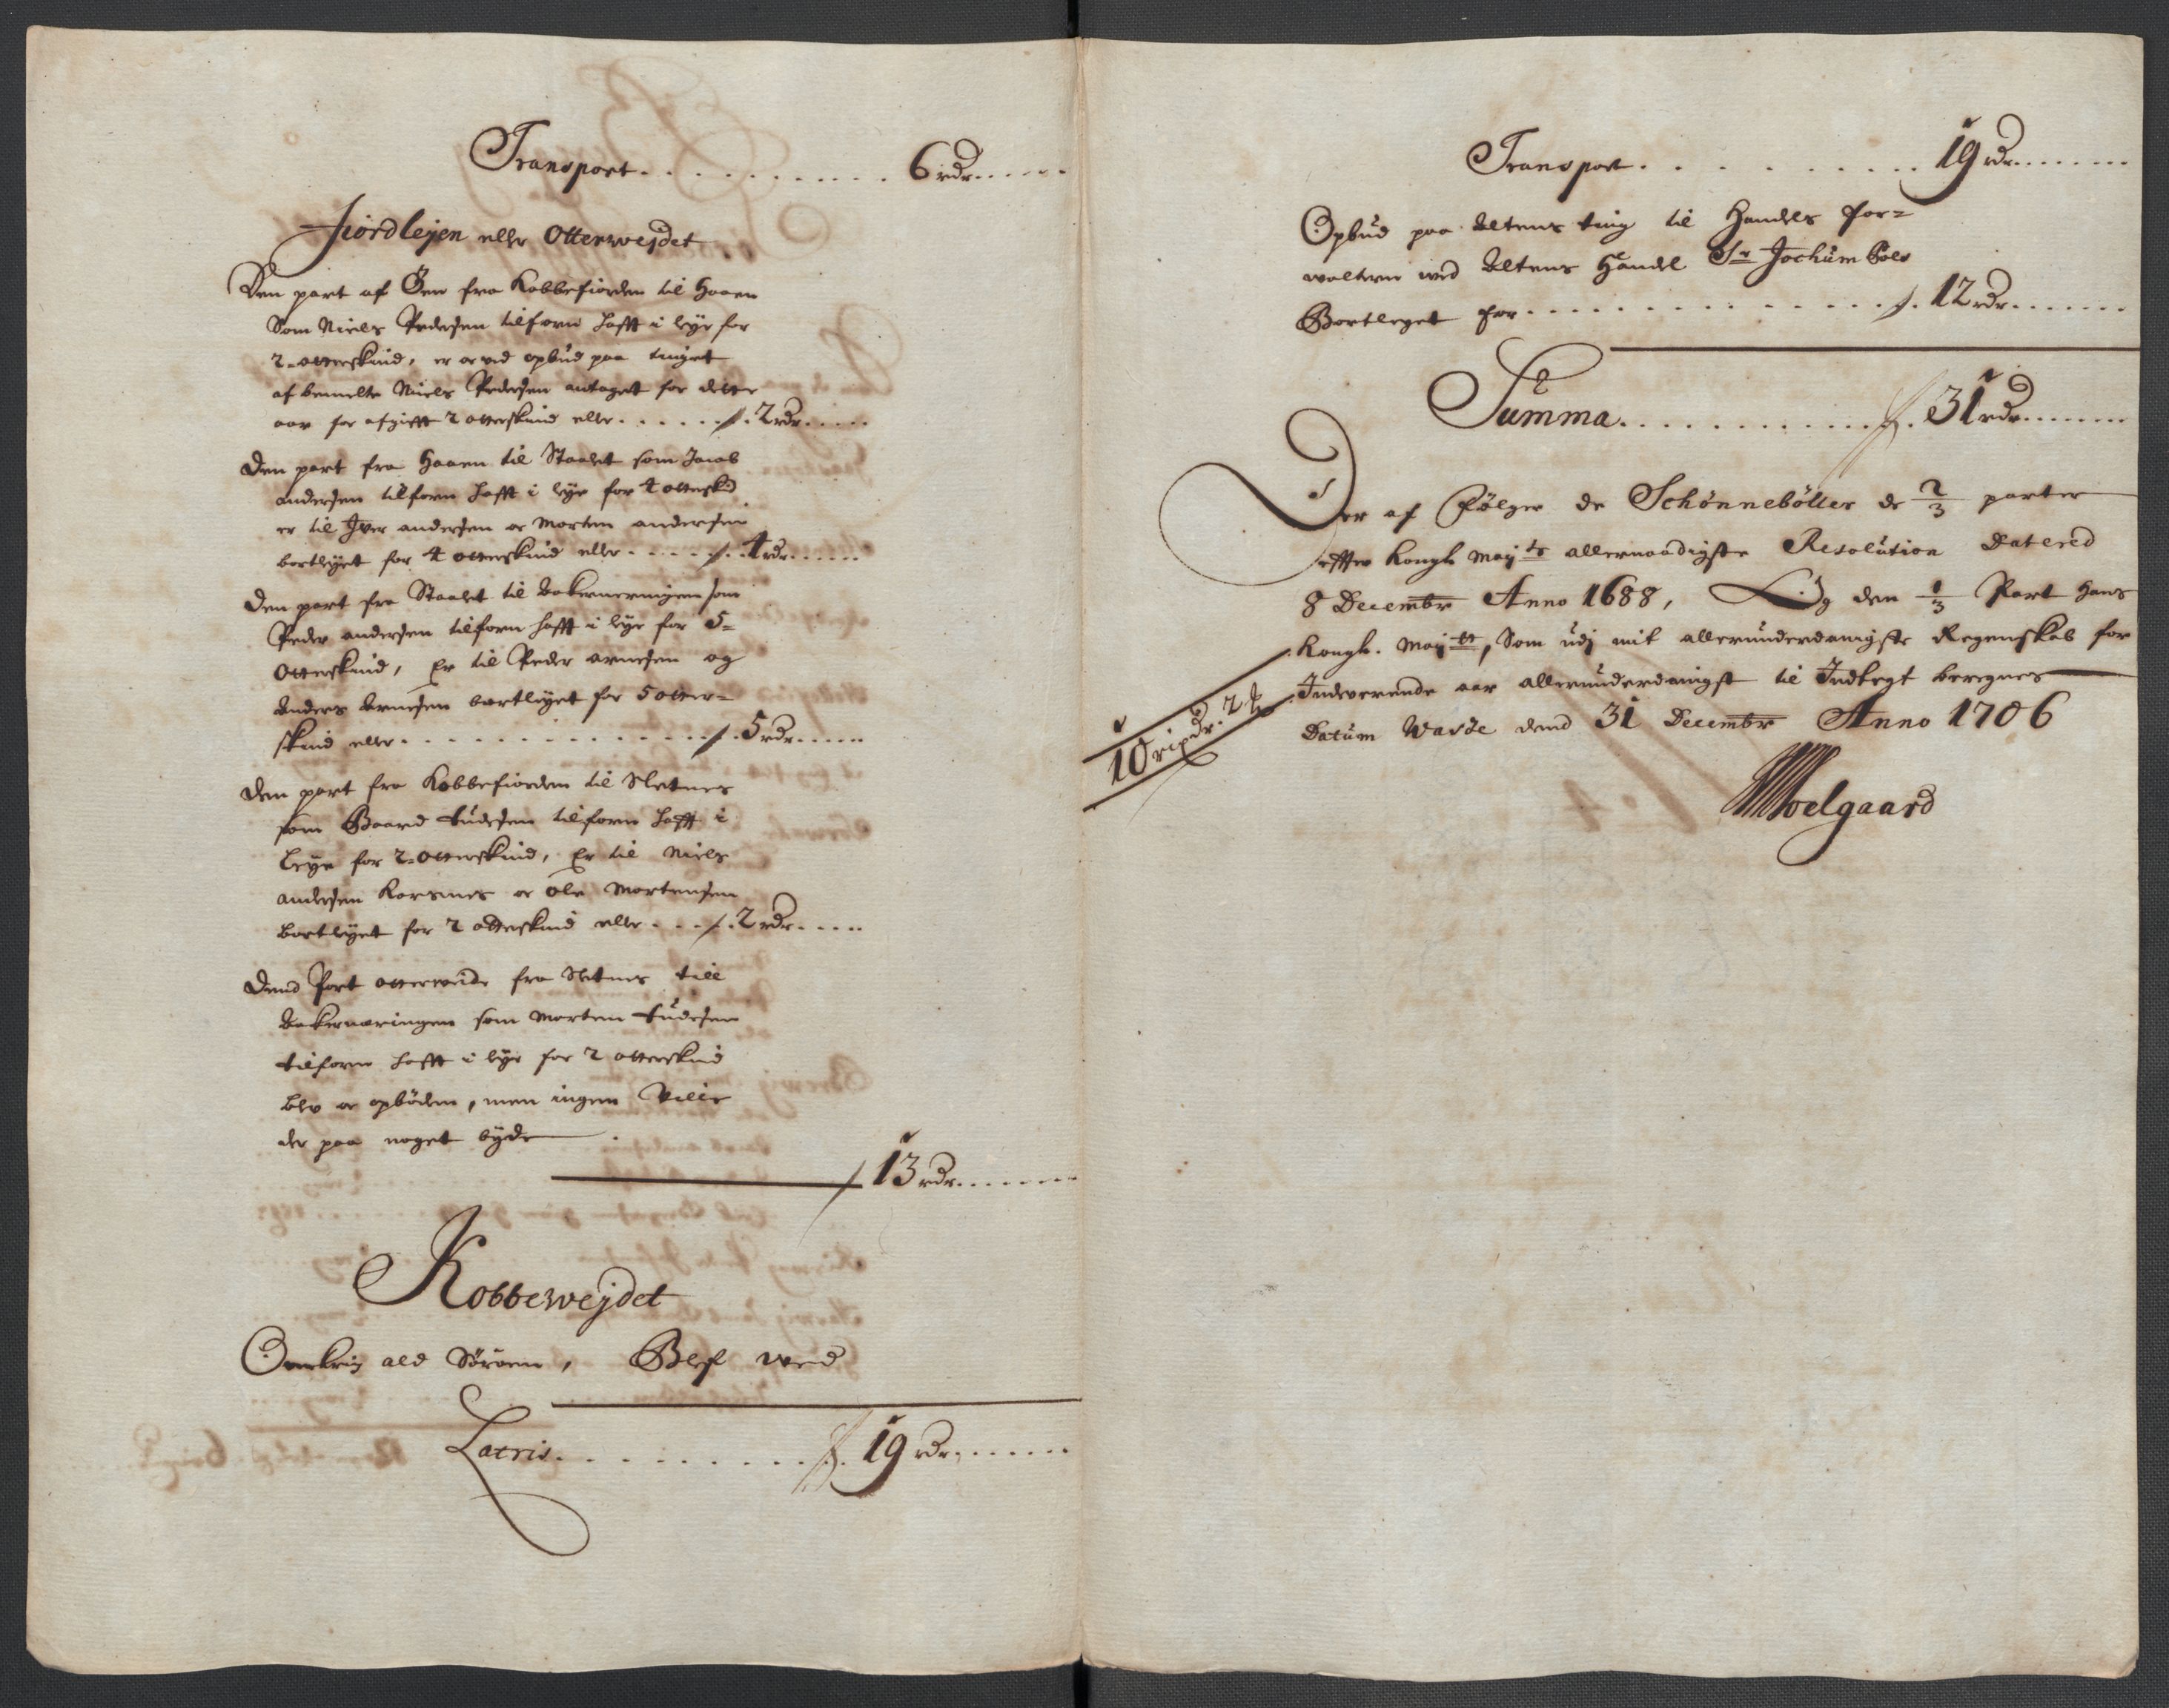 Transport . . . . . . . . . . 6 rdr . . . . .
Fiordlejen eller Otterwejdet
Den part af Øen fra Kobbefiorden til Haaen
Som Niels Pedersen tilforn hafft i leye for
2 - otterskind, er ved opbud paa tinget
af bemelte Niels Pedersen antaget for dette
aar for afgifft 2 otterskind eller . . . . . 2 rdr . . . .
Den part fra Haaen til Staalet som Jacob
andersen tilforn hafft i leye for 4 ottersk:d
er til Iver andersen oc Morten andersen
bortleyet for 4 otterskind eller . . . . . 4 rdr . . . .
Den part fra Staalet til som
Peder andersen tilforn hafft i leye for 5 -
Otterskind, Er til Peder arnesen og
Anders Arnesen bortleyet for 5 otter=
skind eller . . . . . . . . . . . . . 5 rdr . . . .
Den part fra Kobbefiorden til Sletnes
som Baard tilforn hafft i
Leye for 2 - Otterskind, Er til Niels
andersen Korsnes oc Ole Mortensen
bortleyet for 2 otterskind eller . . . . 2 rdr . . . .
Dend Part otterveide fra Sletnes till
som Morten
tilforn hafft i leye for 2 otterskind
blev oc opböden, men ingen Ville
der paa noget byde
13 rdr . . . . .
Kobbewejdet
Omkring ald Sörøen, Blef ved
Latris . . . . . . . . . 19 rdr . . . . .
Transport . . . . . . . . . 19 rdr . . . . .
Opbud paa Altens ting til Handels for=
walteren wed Altens Handel Sr Jochum
Bortleyet for . . . . . . . . . . . . . 12 rdr . . . . .
Summa . . . . . . . . . . . 31 rdr . . . . .
Der af følger de Schønnebøller de 2/3 parter
effter Kongl. May:ts allernaadigste Resolution Datered
8 Decembr Anno 1688, Og den 1/3 Part Hans
Kongl. May:tt, Som udj mit allerunderdanigste Regenskab for
Indeverende aar allerunderdanigst til Indtegt beregnes
10 2
Datum Wadsøe dend 31 Decembr Anno 1706
Moelgaard